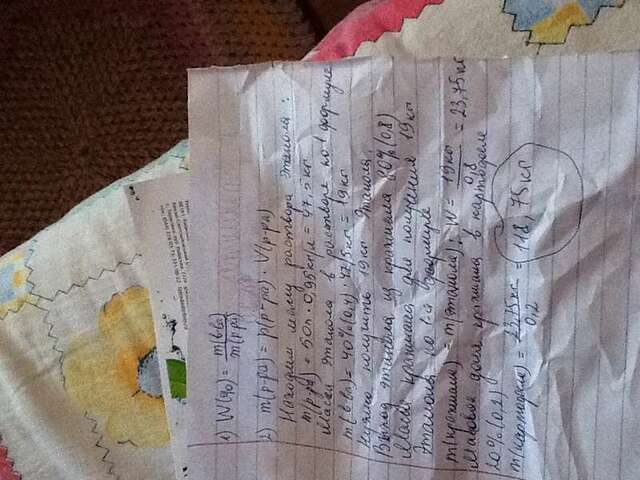 1) W(%) = m(в-ва) / m(р-ра)
2) m(р-ра) = p(р-ра) · V(р-ра)
Находим массу раствора этанола:
m(р-ра) = 50л · 0,95кг/л = 47,5 кг
Масса этанола в растворе по 1 формуле
m(в-ва) = 40%(0,4) · 47,5кг = 19 кг
Нужно получить 19 кг этанола.
Выход этанола из крахмала 80%(0,8)
Масса крахмала для получения 19кг
этанола по формуле
m(крахмала) = m(этанола) : W = 19кг / 0,8 = 23,75 кг
Массовая доля крахмала в картофеле
20%(0,2)
m(картофеля) = 23,75кг / 0,2 = 118,75 кг